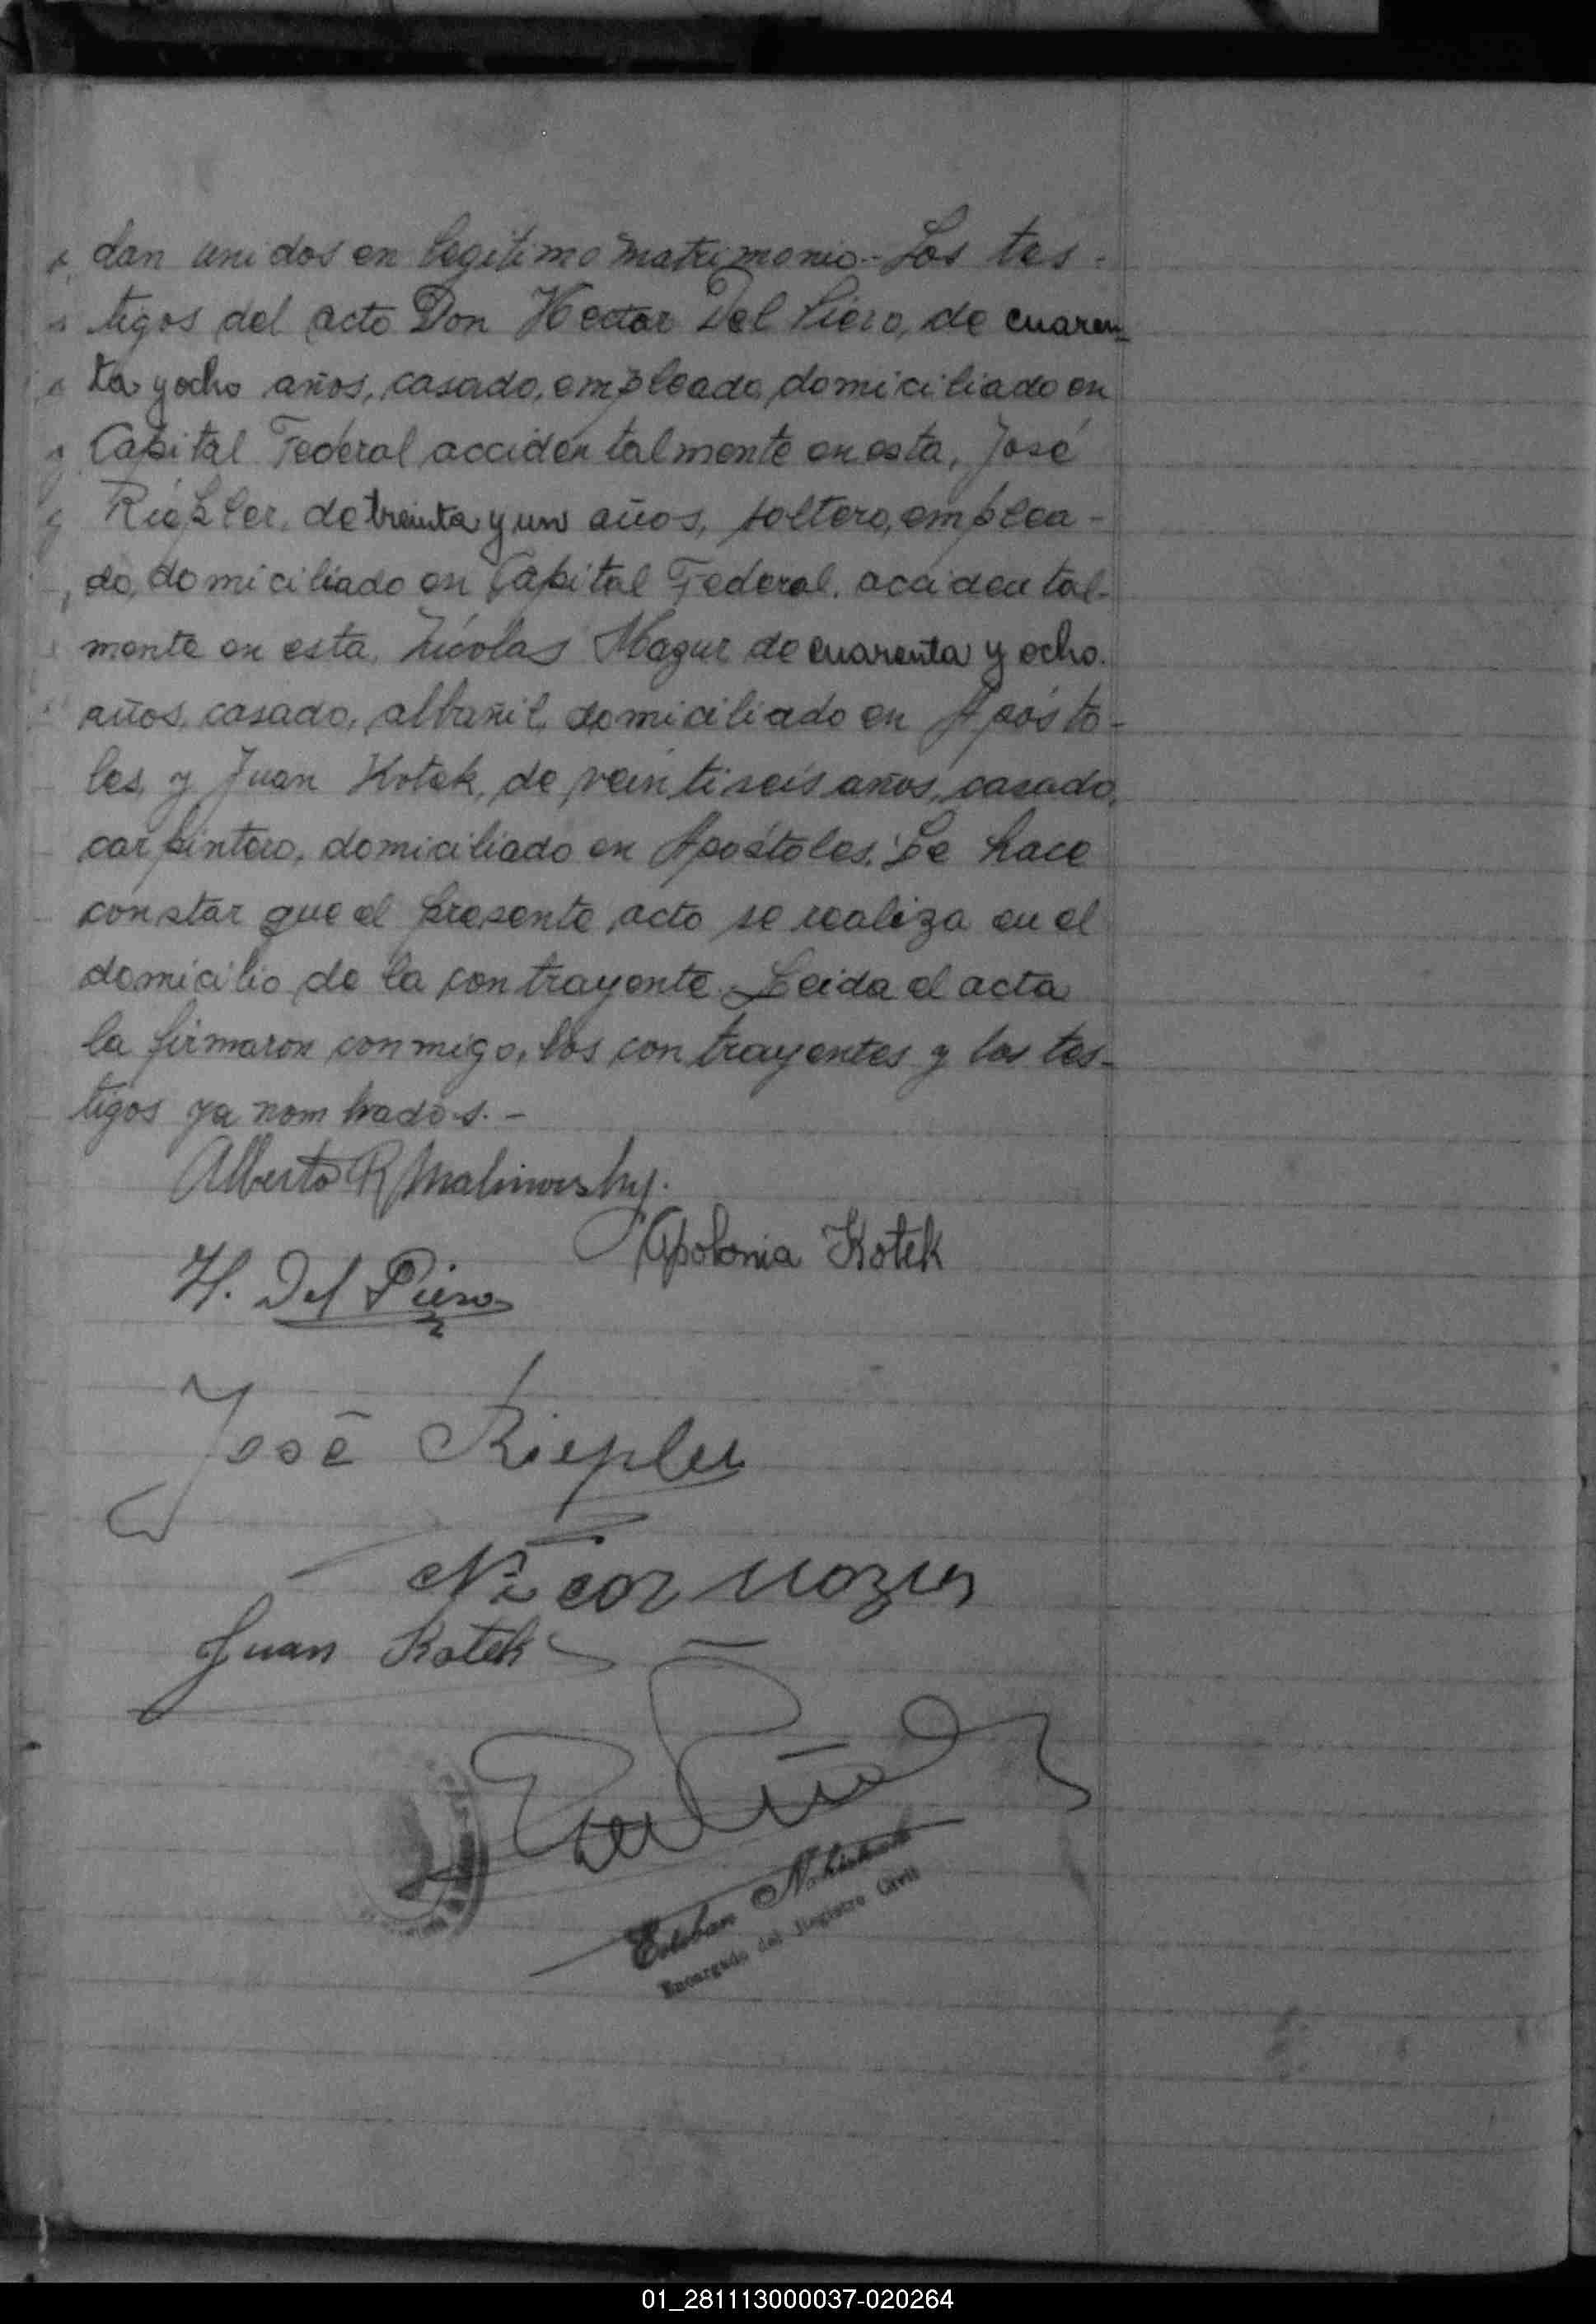 dan unidos en legitimo matrimonio.- Los tes-
tigos del acto Don Hector Del Piero, de cuaren-
ta y ocho años, casado, empleado, domiciliado en
Capital Federal accidentalmente en esta, José
Riepler, de treinta y un años, soltero, emplea-
do, domiciliado en Capital Federal, accidental-
mente en esta, Nicolas Mazur de cuarenta y ocho
años, casado, albañil, domiciliado en Apósto-
les, y Juan Kotek, de veintiseis años, casado,
carpintero, domiciliado en Apóstoles. Se hace
constar que el presente acto se realiza en el
domicilio de la contrayente. Leida el acta
la firmaron conmigo, los contrayentes y los tes-
tigos ya nombrados.-
Alberto R Malinowsky.
Apolonia Kotek
H. Del Piero
José Riepler
Juan Kotek
Esteban
Encargado del Registro Civil
01_281113000037-020264